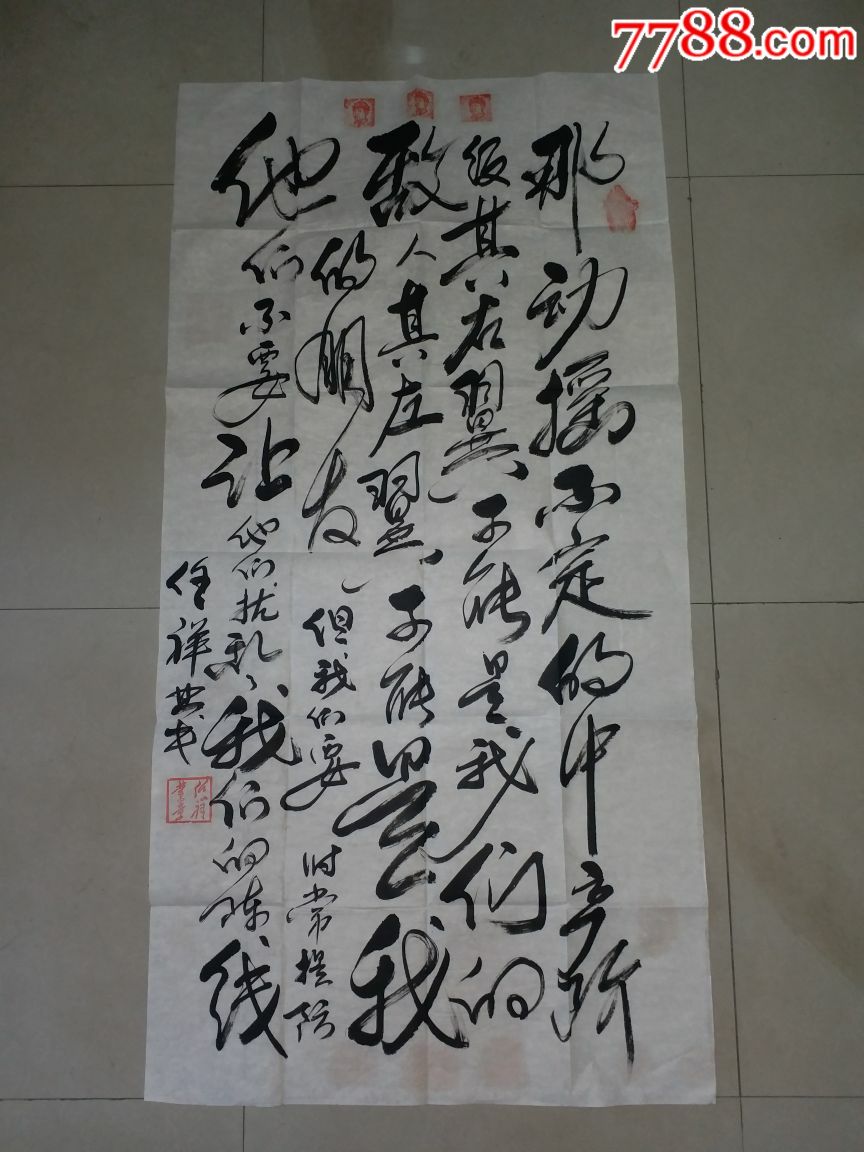 7788.com
那动摇不定的中产阶
级其右翼可能是我们的
敌人其左翼可能是我
的朋友但我们要时常提防
他们不要让他们扰乱我们的阵线
任祥 书